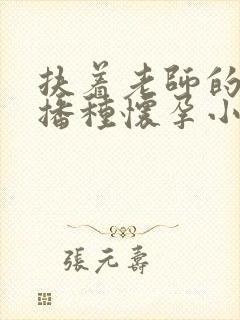 扶着老師的
播種懷孕小
張元壽